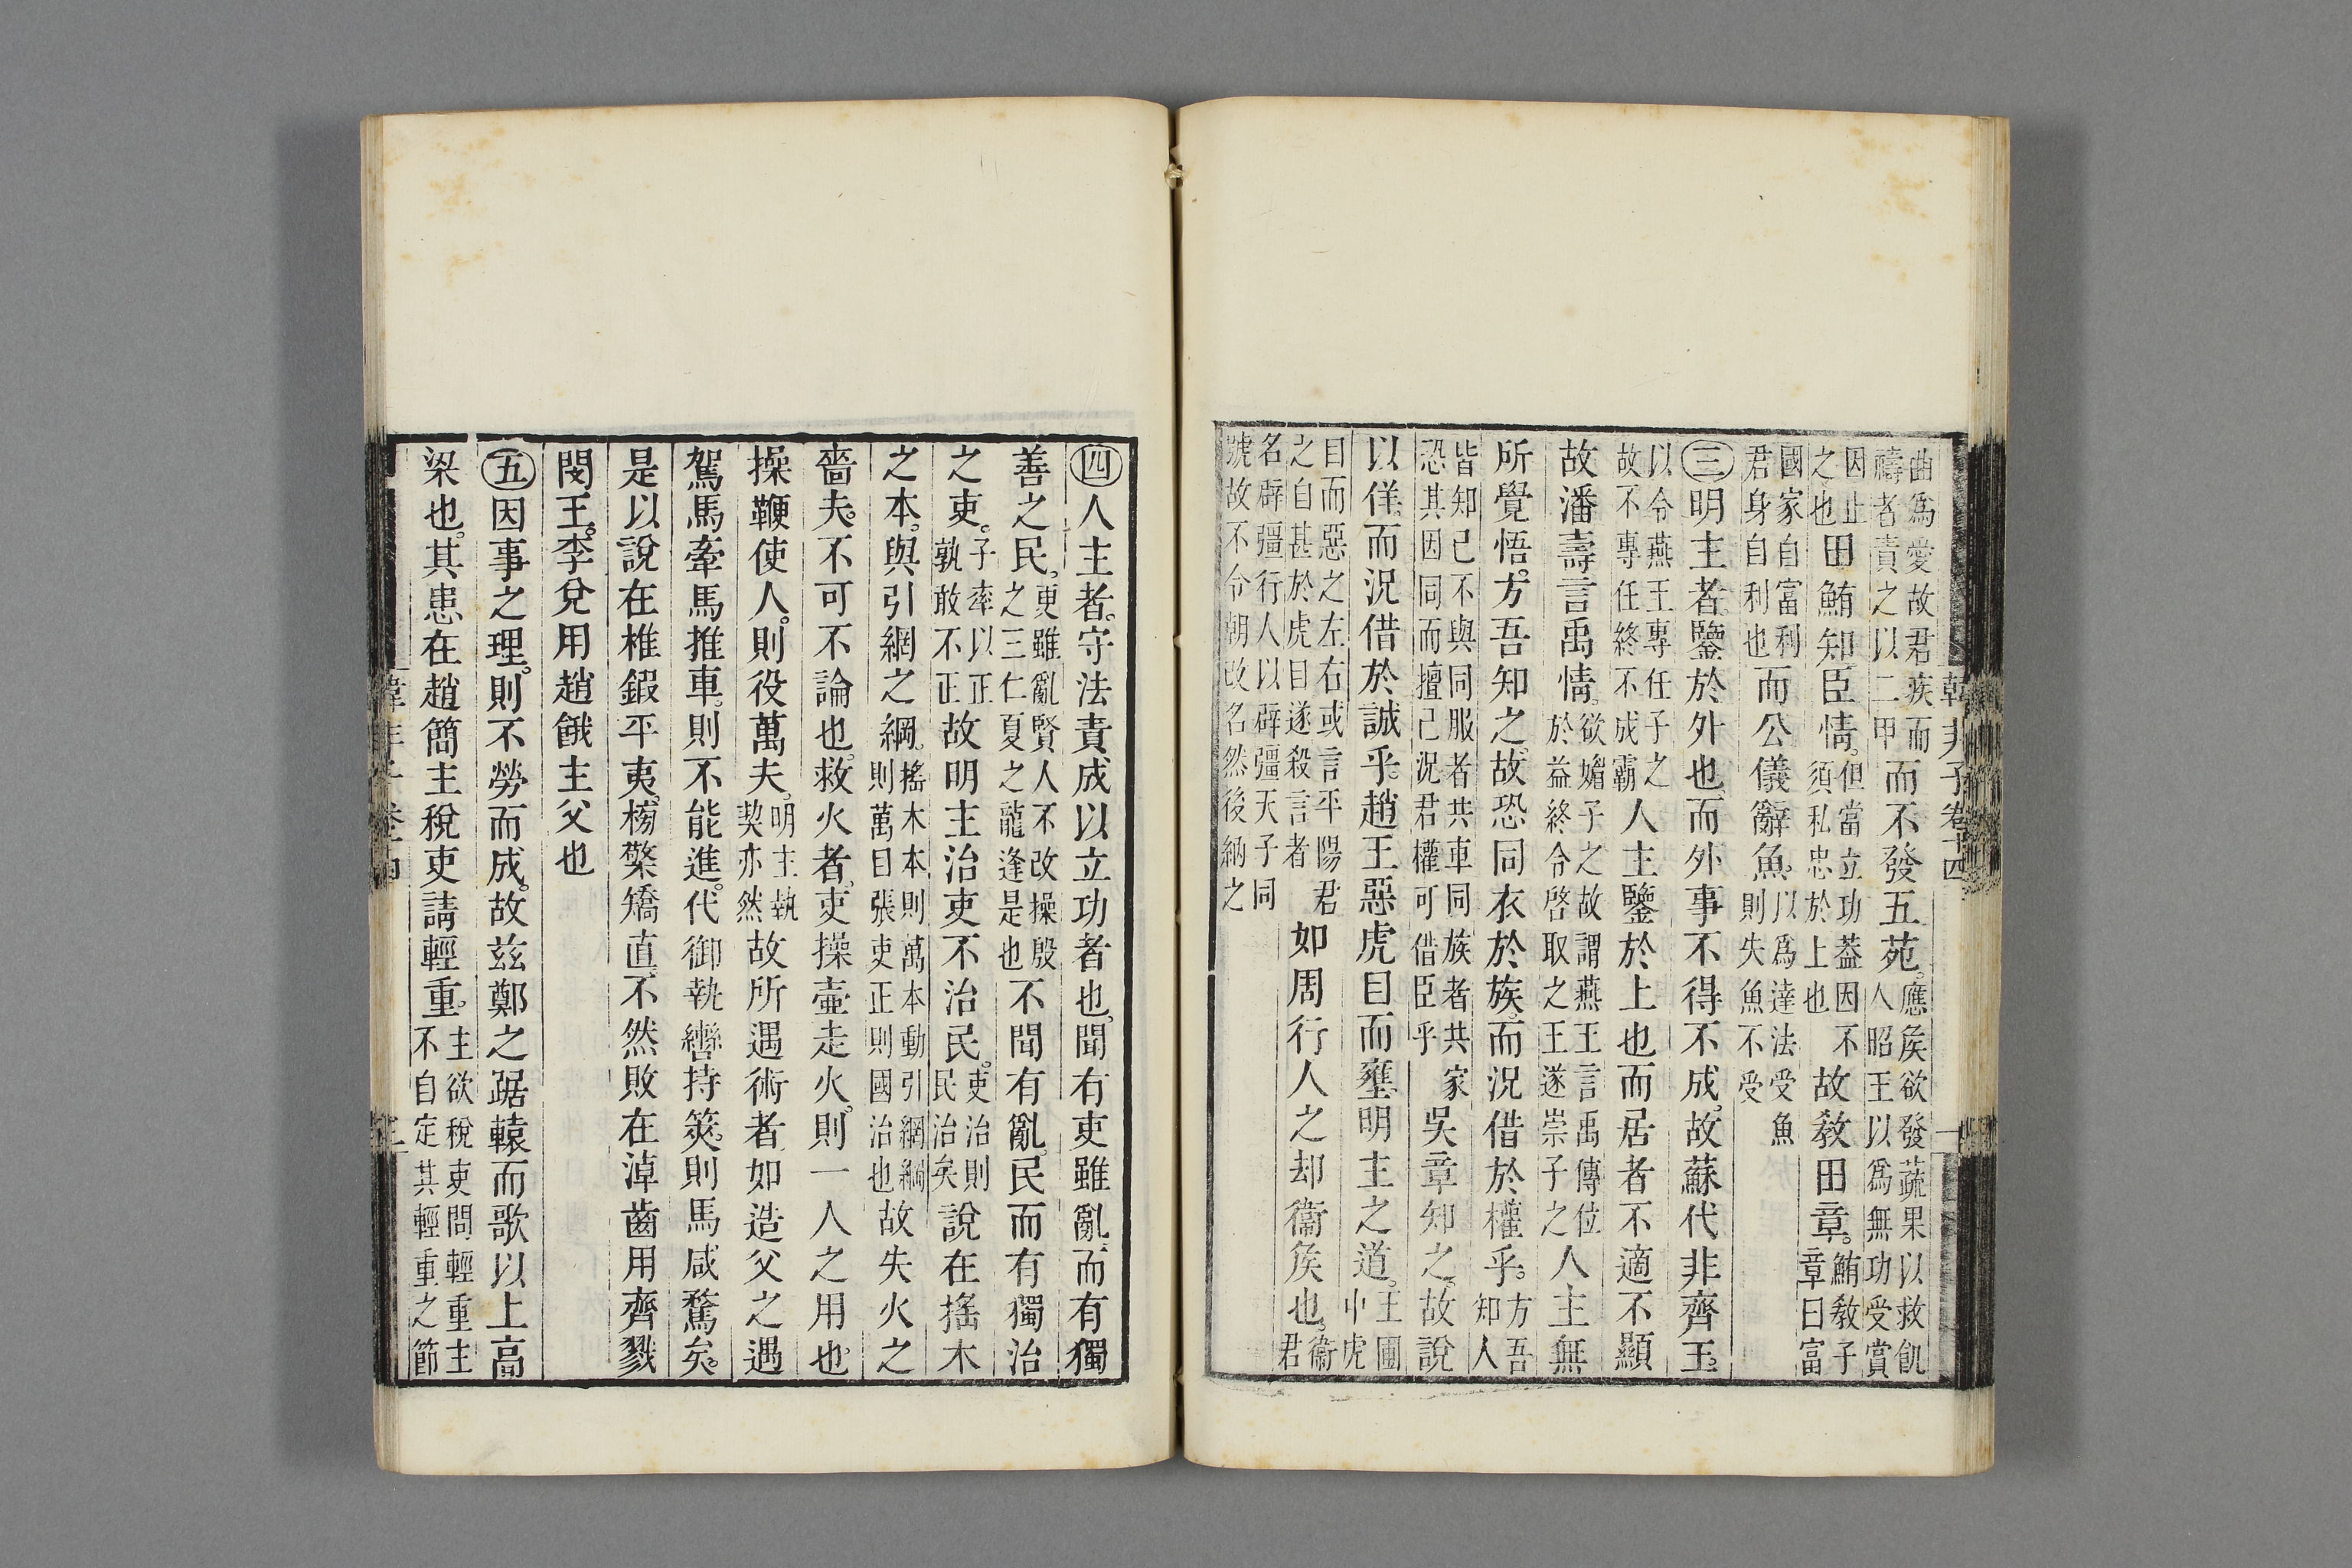 韓非子卷十四 一
曲爲愛故君疾而禱者責之以二甲而不發五苑。應矦欲發蔬果以救飢人昭王以爲無功受賞
因止之也田鮪知臣情。但當立功葢因不須私忠於上也故敎田章。鮪敎子章曰富
國家自富利君身自利也而公儀辭魚。以爲達法受魚則失魚不受
㊂明主者鑒於外也而外事不得不成。故蘇代非齊王。
以令燕王專任子之故不專任終不成霸人主鑒於上也而居者不適不顯
故潘壽言禹情。欲媚子之故謂燕王言禹傳位於益終令啓取之王遂崇子之人主無
所覺悟。方吾知之。故恐同衣於族。而況借於權乎。方吾知人
皆知己不與同服者共車同族者共家恐其因同而擅己況君權可借臣乎吳章知之。故說
以佯而況借於誠乎。趙王惡虎目而壅明主之道。王圃中虎
目而惡之左右或言平陽君之目甚於虎目遂殺言者如周行人之却衞矦也。衞君
名辟彊行人以辟彊天子同號故不令朝改名然後納之
㊃人主者。守法責成以立功者也。聞有吏雖亂而有獨
善之民。吏雖亂賢人不改操殷之三仁夏之龍逢是也不聞有亂民而有獨治
之吏。子率以正孰敢不正故明主治吏不治民。吏治則民治矣說在搖木
之本。與引綱之綱。搖木本則萬本動引綱綱則萬目張吏正則國治也故失火之
嗇夫。不可不論也。救火者。吏操壷走火。則一人之用也。
操鞭使人。則役萬夫。明主執契亦然故所遇術者如造父之遇
駕馬牽馬推車。則不能進。代御執轡持筴。則馬咸騖矣。
是以說在椎鍛平夷。榜檠矯直。不然敗在淖齒用齊戮
閔王。李兌用趙餓主父也
㊄因事之理。則不勞而成。故兹鄭之踞轅而歌以上高
梁也。其患在趙簡主稅吏請輕重。主欲稅吏問輕重主不自定其輕重之節